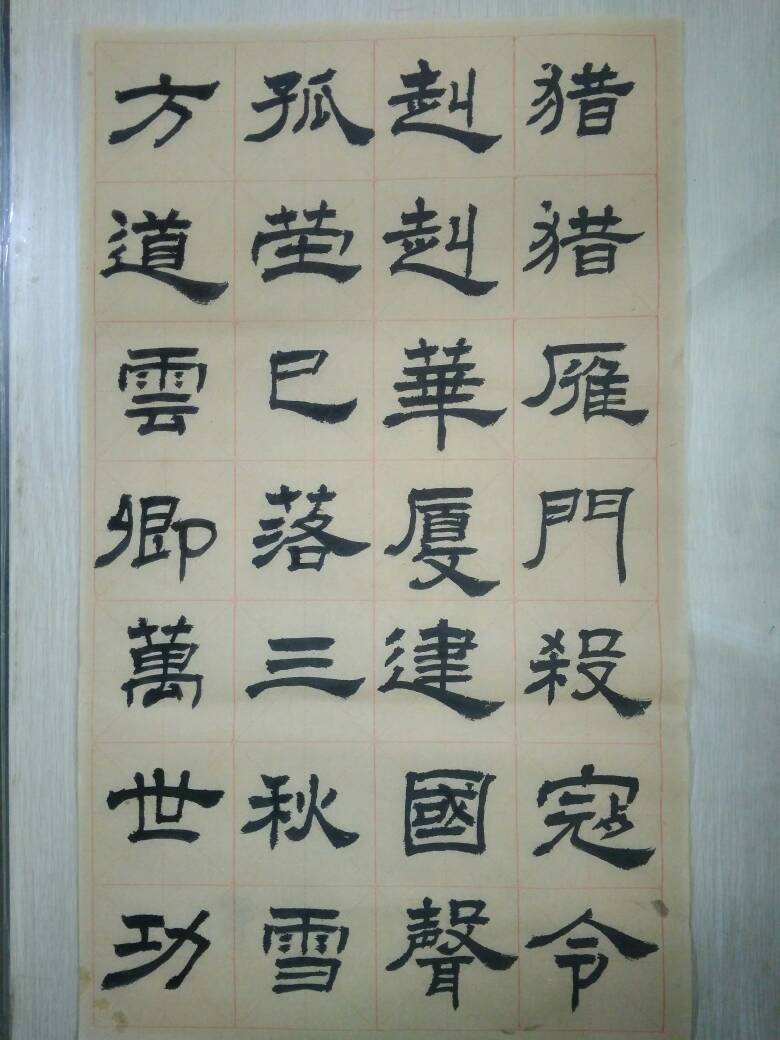 猎猎雁門殺寇令
赳赳華厦建國聲
孤茔已落三秋雪
方道雲卿萬世功